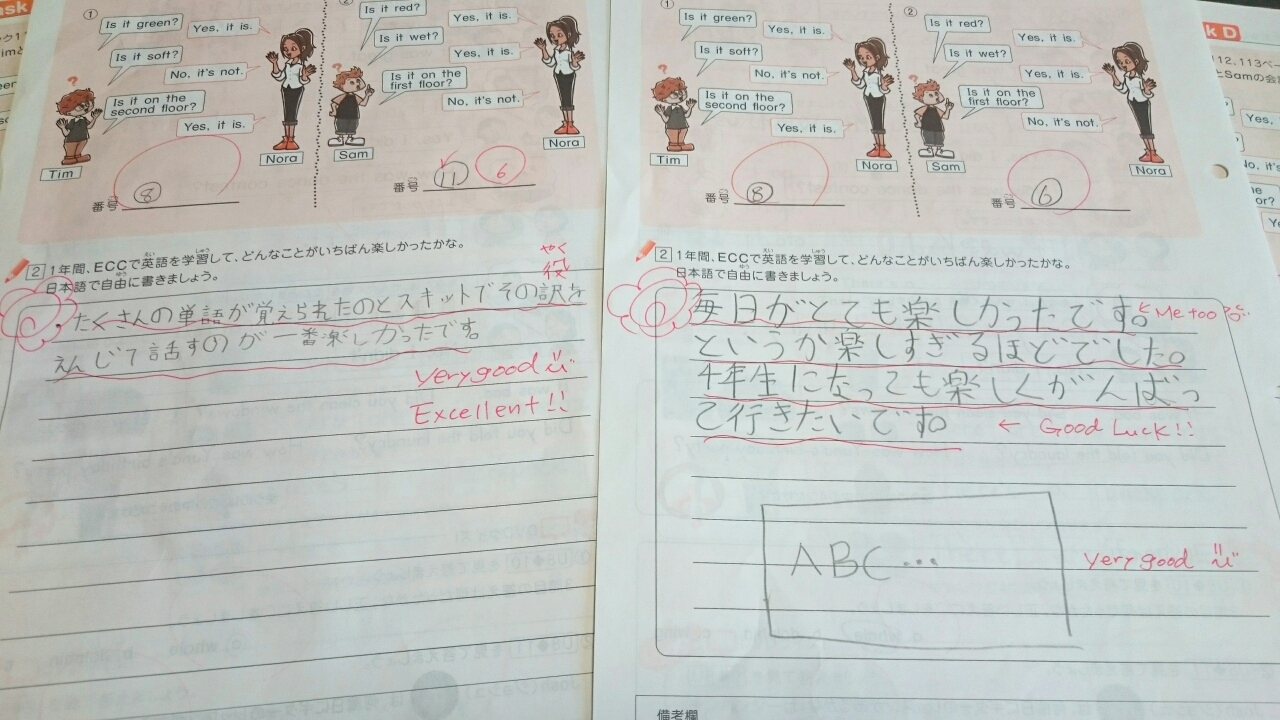 ask
①
Is it green?
Yes, it is.
Is it soft?
No, it's not.
Is it on the
second floor?
Yes, it is.
Tim
Nora
番号
⑧
②
Is it red?
Yes, it is.
Is it wet?
Yes, it is.
Is it on the
first floor?
No, it's not.
Sam
Nora
番号
⑪ 6
2 1年間、ECCで英語を学習して、どんなことがいちばん楽しかったかな。
日本語で自由に書きましょう。
やく
役
・たくさんの単語が覚えられたのとスキットでその訳を
えんじて話すのが一番楽しかったです。
Very good
Excellent!!
①
Is it green?
Yes, it is.
Is it soft?
No, it's not.
Is it on the
second floor?
Yes, it is.
Tim
Nora
番号
⑧
②
Is it red?
Yes, it is.
Is it wet?
Yes, it is.
Is it on the
first floor?
No, it's not.
Sam
Nora
番号
⑥
2 1年間、ECCで英語を学習して、どんなことがいちばん楽しかったかな。
日本語で自由に書きましょう。
毎日がとても楽しかったです。 ← Me too
というか楽しすぎるほどでした。
4年生になっても楽しくがんばっ
て行きたいです。 ← Good Luck!!
ABC…
Very good
備考欄
k D
112、113ペー
Samの会